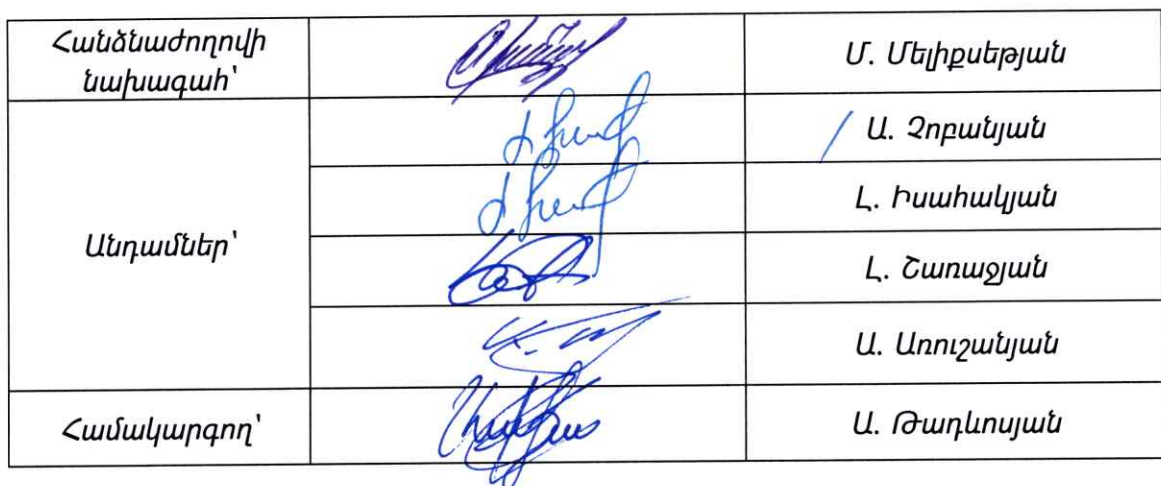 Հանձնաժողովի
նախագահ՝
Մ. Մելիքսեթյան
Անդամներ՝
Ա. Չոբանյան
Լ. Իսահակյան
Լ. Շառաջյան
Ա. Առուշանյան
Համակարգող՝
Ա. Թադևոսյան